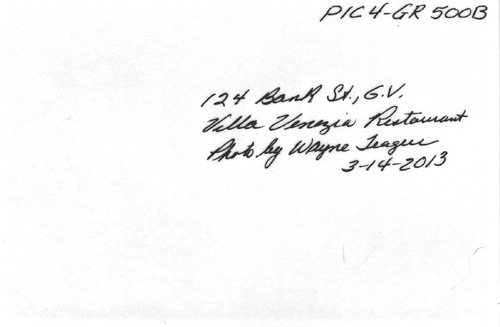 PIC4-GR 500B
124 Bank St., G.V.
Villa Venezia Restaurant
Photo by Wayne Teague
3-14-2013